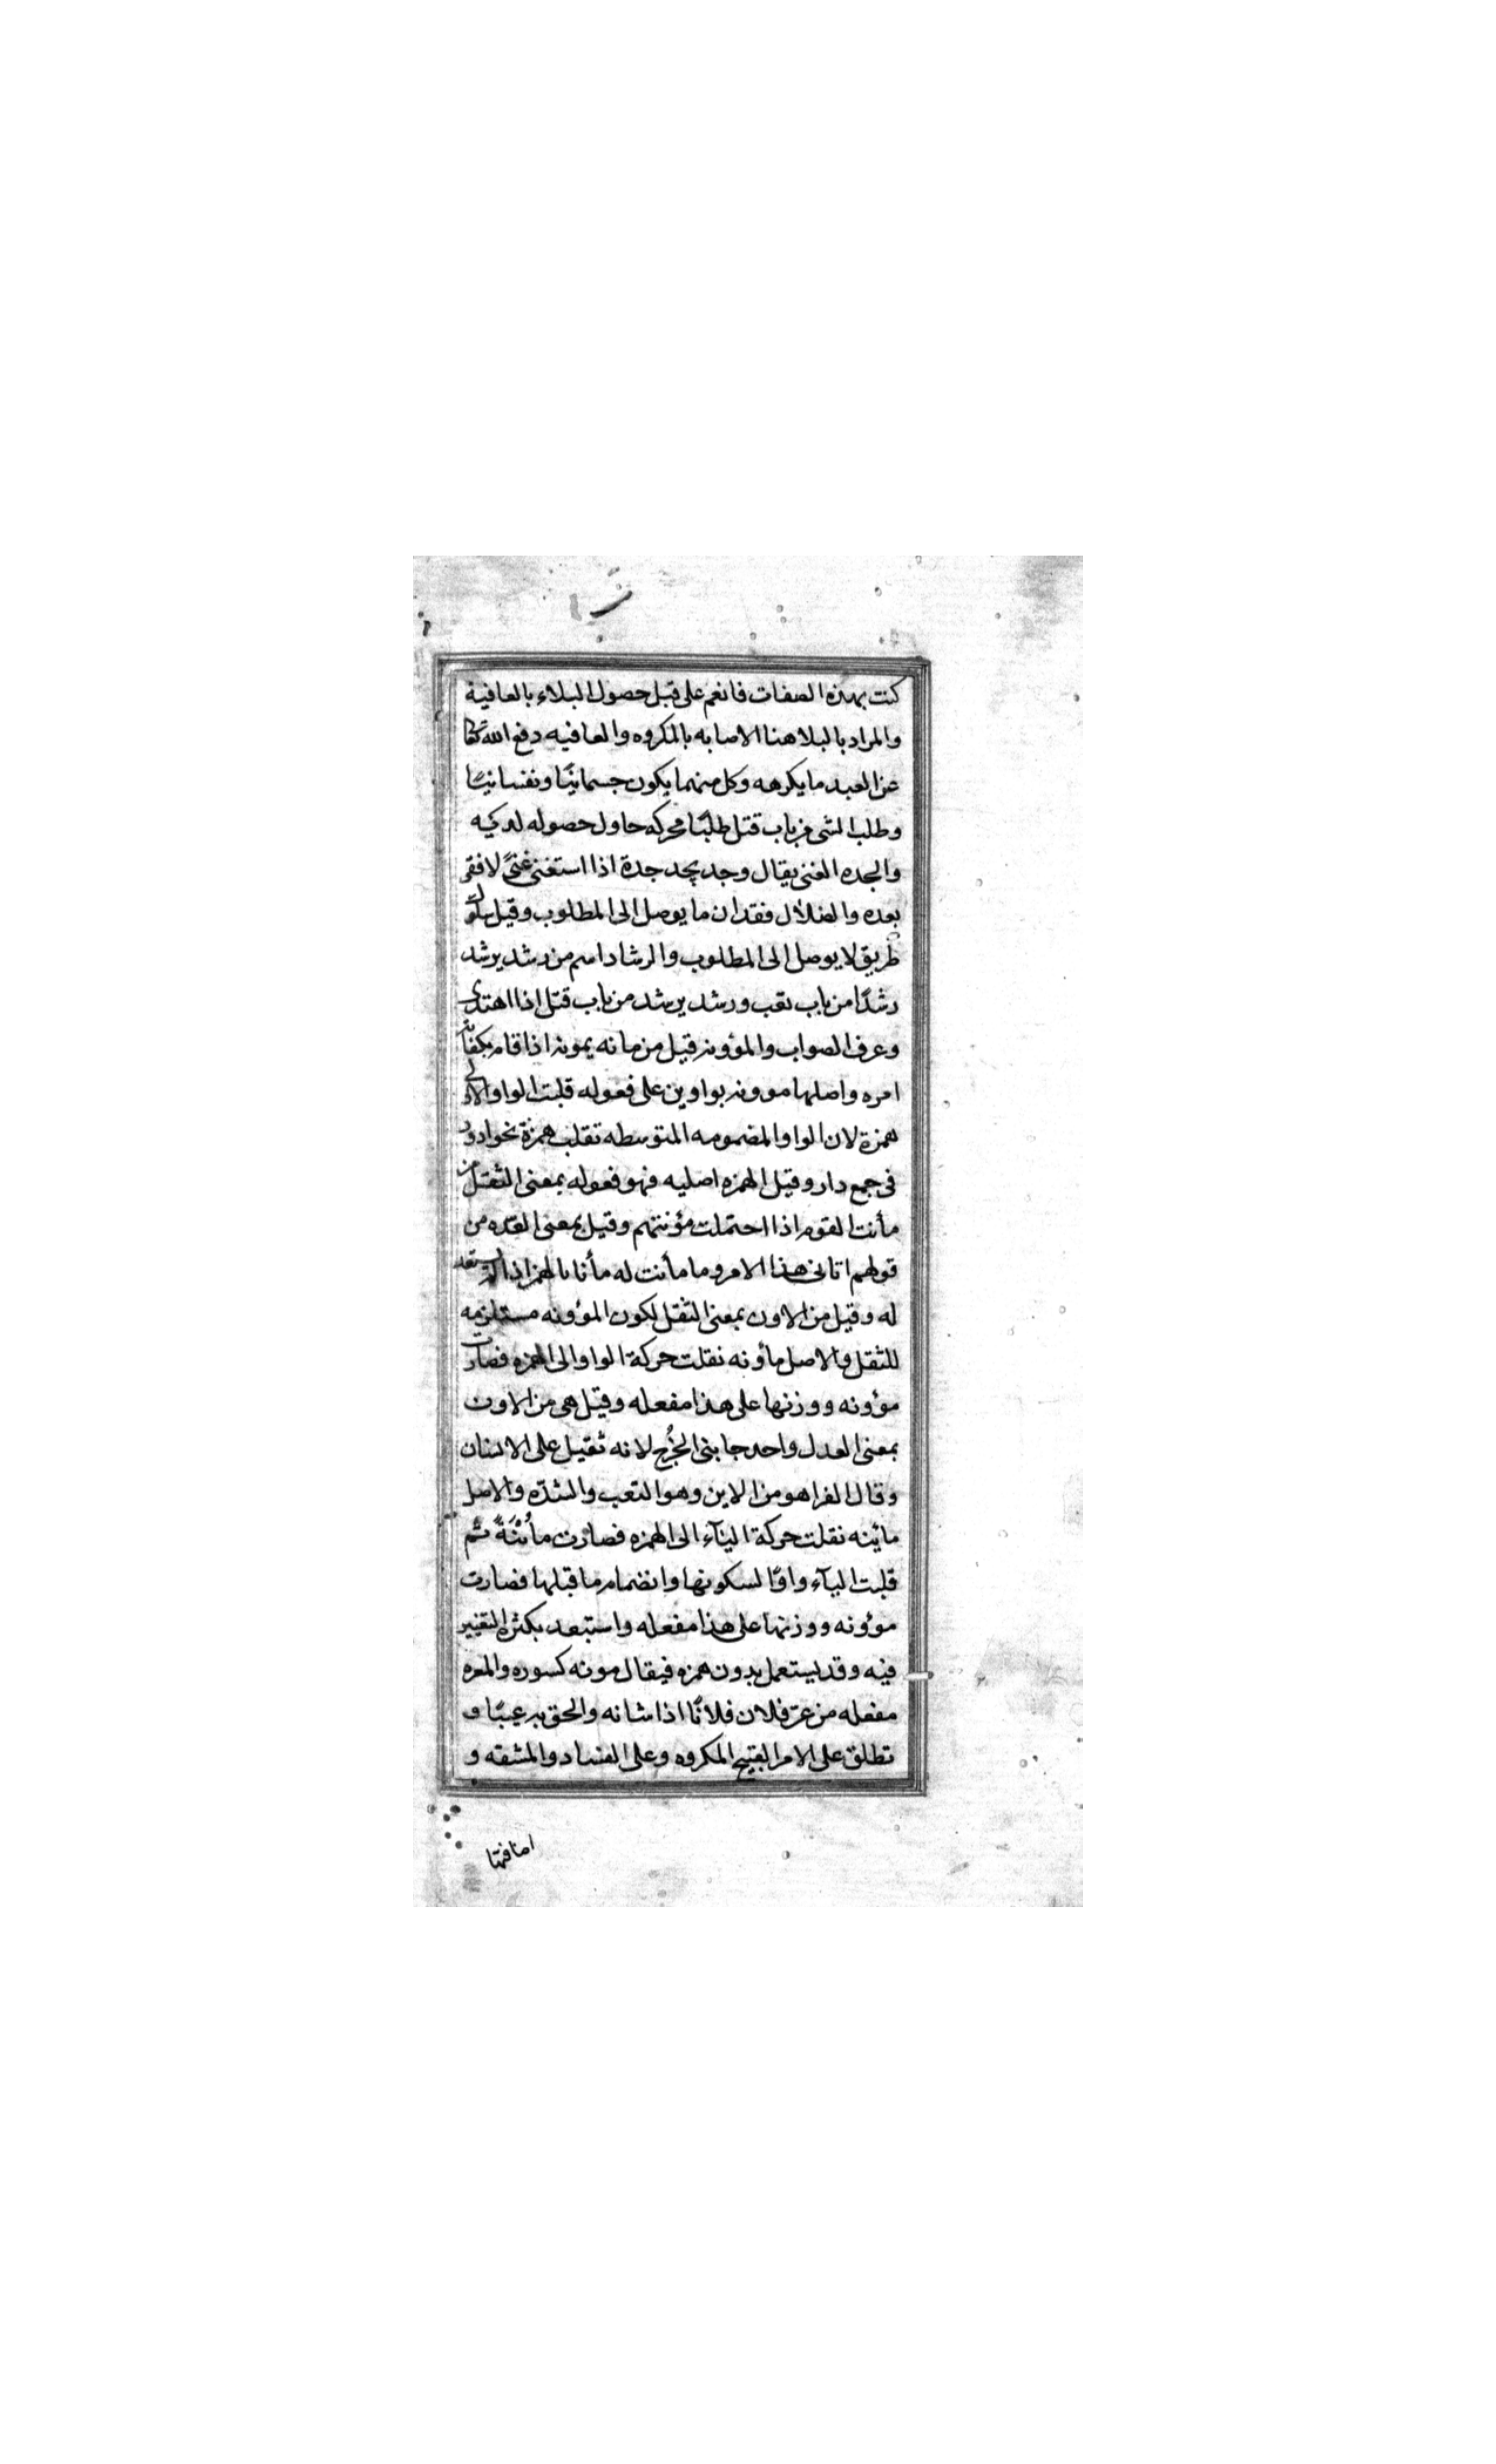 كنت بهذه الصفات فانعم على قبل حصول البلاء بالعافية
والمراد بالبلا هنا الاصابه بالمكروه والعافيه دفع الله تعالى
عن العبد ما يكرهه وكل منهما يكون جسمانيًا ونفسانيًا
وطلب الشى من باب قتل طلبًا محركه حاول حصوله لديه
والجده الغنى يقال وجد يجد جدة اذا استغنى غنىً لا فقر
بعده والضلال فقدان ما يوصل الى المطلوب وقيل سلوك
طريق لا يوصل الى المطلوب والرشاد اسم من رشد يرشد
رشدًا من باب تعب ورشد يرشد من باب قتل اذا اهتدى
وعرف الصواب والمؤونه قيل من مانه يمونه اذا قام بكفاية
امره واصلها موونه بواوين على فعوله قلبت الواو الاولى
همزة لان الواو المضمومه المتوسطه تقلب همزة نحو ادؤر
فى جمع دار وقيل الهمزه اصليه فهو فعوله بمعنى الثقل من
مأنت القوم اذا احتملت مؤنتهم وقيل بمعنى العدّه من
قولهم اتانى هذا الامر وما مأنت له مأنا بالهمز اذا لم تستعد
له وقيل من الاون بمعنى الثقل لكون المؤونه مستلزمه
للثقل والاصل مأونه نقلت حركة الواو الى الهمزه فصارت
مؤونه ووزنها على هذا مفعله وقيل هى من الاون
بمعنى العدل واحد جانبى الخُرج لانه ثقيل على الانسان
وقال الفرا هو من الاين وهو التعب والشدّه والاصل
مائينه نقلت حركة اليآء الى الهمزه فصارت مأُيْنَةً ثم
قلبت اليآء واوًا لسكونها وانضمام ما قبلها فصارت
مؤونه ووزنها على هذا مفعله واستبعد بكثرة التغيير
فيه وقد يستعمل بدون همزه فيقال مونه كسوره والمعره
مفعله من عرّ فلان فلانًا اذا شانه والحق به عيبًا و
تطلق على الامر القبيح المكروه وعلى الفساد والمشقه و